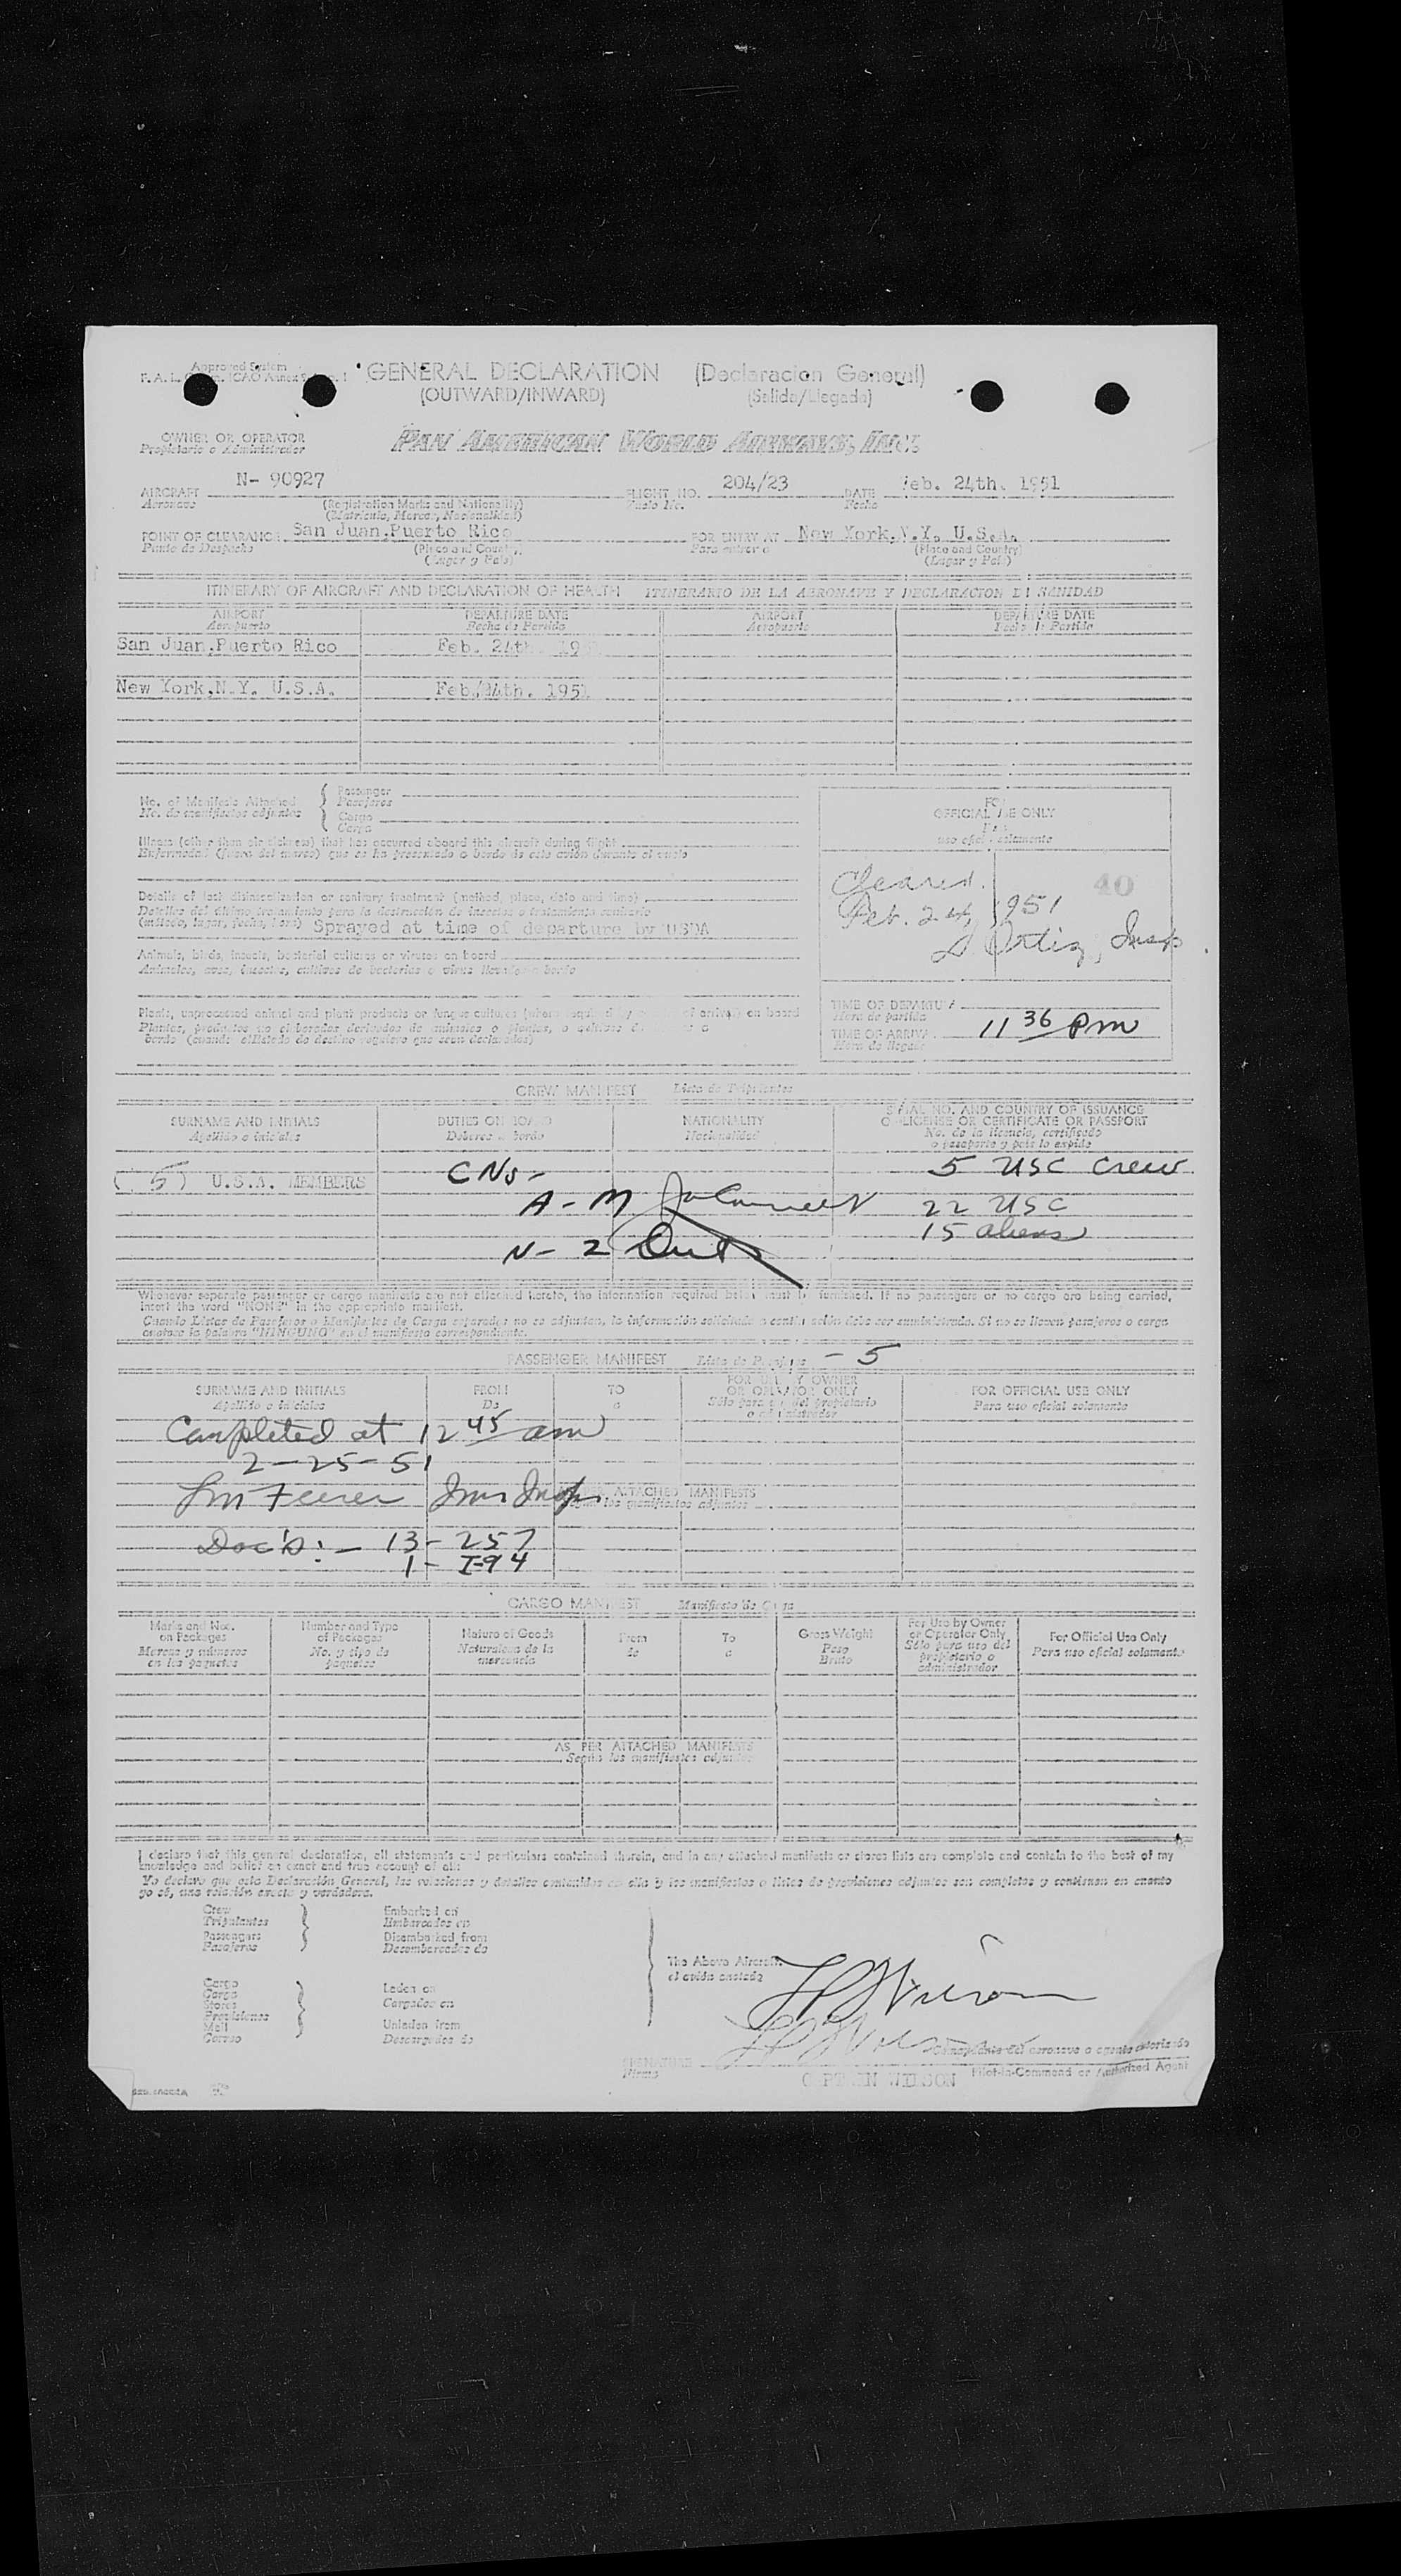 Approved System
GENERAL DECLARATION (Declaracion General)
(OUTWARD/INWARD) (Salida/Llegada)
OWNER OR OPERATOR PAN AMERICAN WORLD AIRWAYS, INC.
Propietario o Administrador
AIRCRAFT N- 90927 FLIGHT NO. 204/23 DATE Feb. 24th. 1951
Aeronave (Registration Marks and Nationality) Vuelo No. Fecha
(Matricula, Marcas, Nacionalidad)
POINT OF CLEARANCE San Juan,Puerto Rico FOR ENTRY AT New York,N.Y. U.S.A.
Punto de Despacho (Place and Country) Para entrar a (Place and Country)
(Lugar y Pais) (Lugar y Pais)
ITINERARY OF AIRCRAFT AND DECLARATION OF HEALTH ITINERARIO DE LA AERONAVE Y DECLARACION DE SANIDAD
AIRPORT DEPARTURE DATE AIRPORT DEPARTURE DATE
Aeropuerto Fecha de Partida Aeropuerto Fecha de Partida
San Juan,Puerto Rico Feb. 24th 19
New York,N.Y. U.S.A. Feb. 24th. 1951
No. of Manifests Attached Passenger
No. de manifiestos adjuntos Pasajeros
Cargo
Carga
FOR
OFFICIAL USE ONLY
Para
uso oficial solamente
Illness (other than air sickness) that has occurred aboard this aircraft during flight
Enfermedad (fuera del mareo) que se ha presentado a bordo de este avión durante el vuelo
Details of last disinsectization or sanitary treatment (method, place, date and time)
Detalles del último tratamiento para la destrucción de insectos o tratamiento sanitario
(método, lugar, fecha, hora) Sprayed at time of departure by USDA
Cleared. 40
Feb. 24, 1951
D Ortiz, Insp.
Animals, birds, insects, bacterial cultures or viruses on board
Animales, aves, insectos, cultivos de bacterias o virus llevados a bordo
Plants, unprocessed animal and plant products or fungus cultures (where required by of arrival) on board
Plantas, productos no elaborados derivados de animales o plantas, o cultivos
bordo (cuando el Estado de destino requiera que sean declarados)
TIME OF DEPARTURE
Hora de partida
TIME OF ARRIVAL 11 36 Pm
Hora de llegada
CREW MANIFEST Lista de Tripulantes
SURNAME AND INITIALS DUTIES ON BOARD NATIONALITY SERIAL NO. AND COUNTRY OF ISSUANCE
Apellido e iniciales Deberes a bordo Nacionalidad OF LICENSE OR CERTIFICATE OR PASSPORT
No. de la licencia, certificado
o pasaporte y pais lo expide
(5) U.S.A. MEMBERS CNs- 5 USC Crew
A-M 22 USC
15 aliens
N-2
Whenever separate passenger or cargo manifests are not attached hereto, the information required below must be furnished. If no passengers or no cargo are being carried,
insert the word "NONE" in the appropriate manifest.
Cuando Listas de Pasajeros o Manifiestos de Carga separados no se adjunten, la información solicitada a continuación debe ser suministrada. Si no se llevan pasajeros o carga
anótese la palabra "NINGUNO" en el manifiesto correspondiente.
PASSENGER MANIFEST Lista de Pasajeros - 5
SURNAME AND INITIALS FROM TO FOR USE BY OWNER OR OPERATOR ONLY FOR OFFICIAL USE ONLY
Apellido e iniciales De a Sólo para uso del propietario o administrador Para uso oficial solamente
Completed at 12 45 am
2-25-51
Imm Insp.
ATTACHED MANIFESTS
los manifiestos adjuntos
Doc's:- 13- 257
1- I-94
CARGO MANIFEST Manifiesto de Carga
Marks and Nos. on Packages Number and Type of Packages Nature of Goods From To Gross Weight For Use by Owner or Operator Only For Official Use Only
Marcas y números en los paquetes No. y tipo de paquetes Naturaleza de la mercancia de a Peso Bruto Sólo para uso del propietario o administrador Para uso oficial solamente
AS PER ATTACHED MANIFESTS
Según los manifiestos adjuntos
I declare that this general declaration, all statements and particulars contained therein, and in any attached manifests or stores lists are complete and contain to the best of my
knowledge and belief an exact and true account of all:
Yo declaro que esta Declaración General, las relaciones y detalles contenidos en ella y los manifiestos o listas de provisiones adjuntos son completos y contienen en cuanto
yo sé, una relación exacta y verdadera.
Crew Embarked on
Tripulantes Embarcados en
Passengers Disembarked from
Pasajeros Desembarcados de
The Above Aircraft.
el avión anotado
Cargo Laden on
Carga Cargados en
Stores
Provisiones
Mail Unladen from
Correo Descargados de
SIGNATURE
Firma
Comandante del aeronave o agente autorizado
CAPTAIN WILSON Pilot-in-Command or Authorized Agent